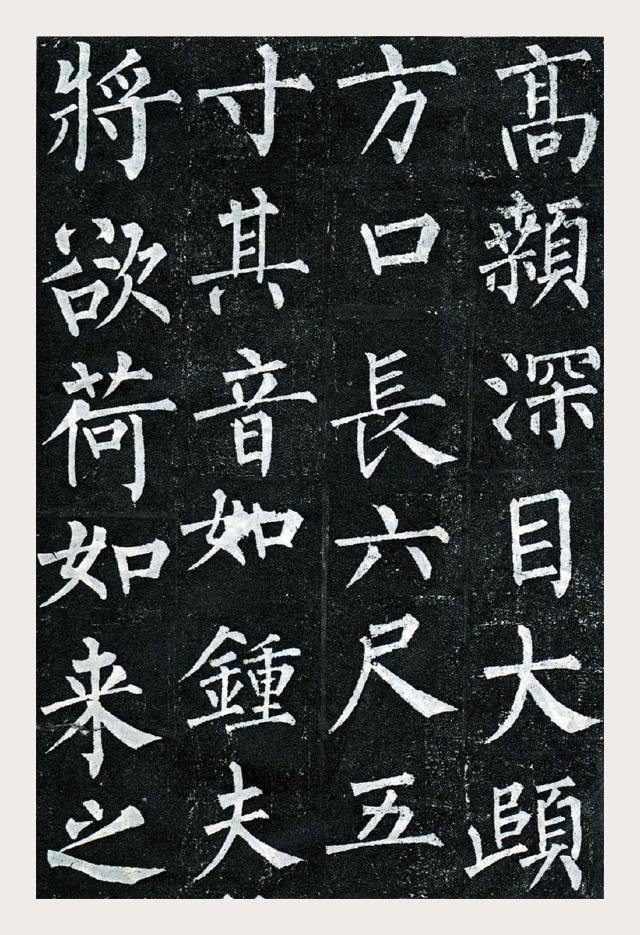 髙顙深目大頤
方口長六尺五
寸其音如鍾夫
將欲荷如来之